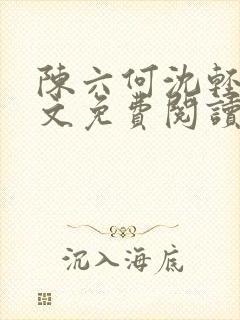 陳六何沈輕
文免費閱讀
沉入海底